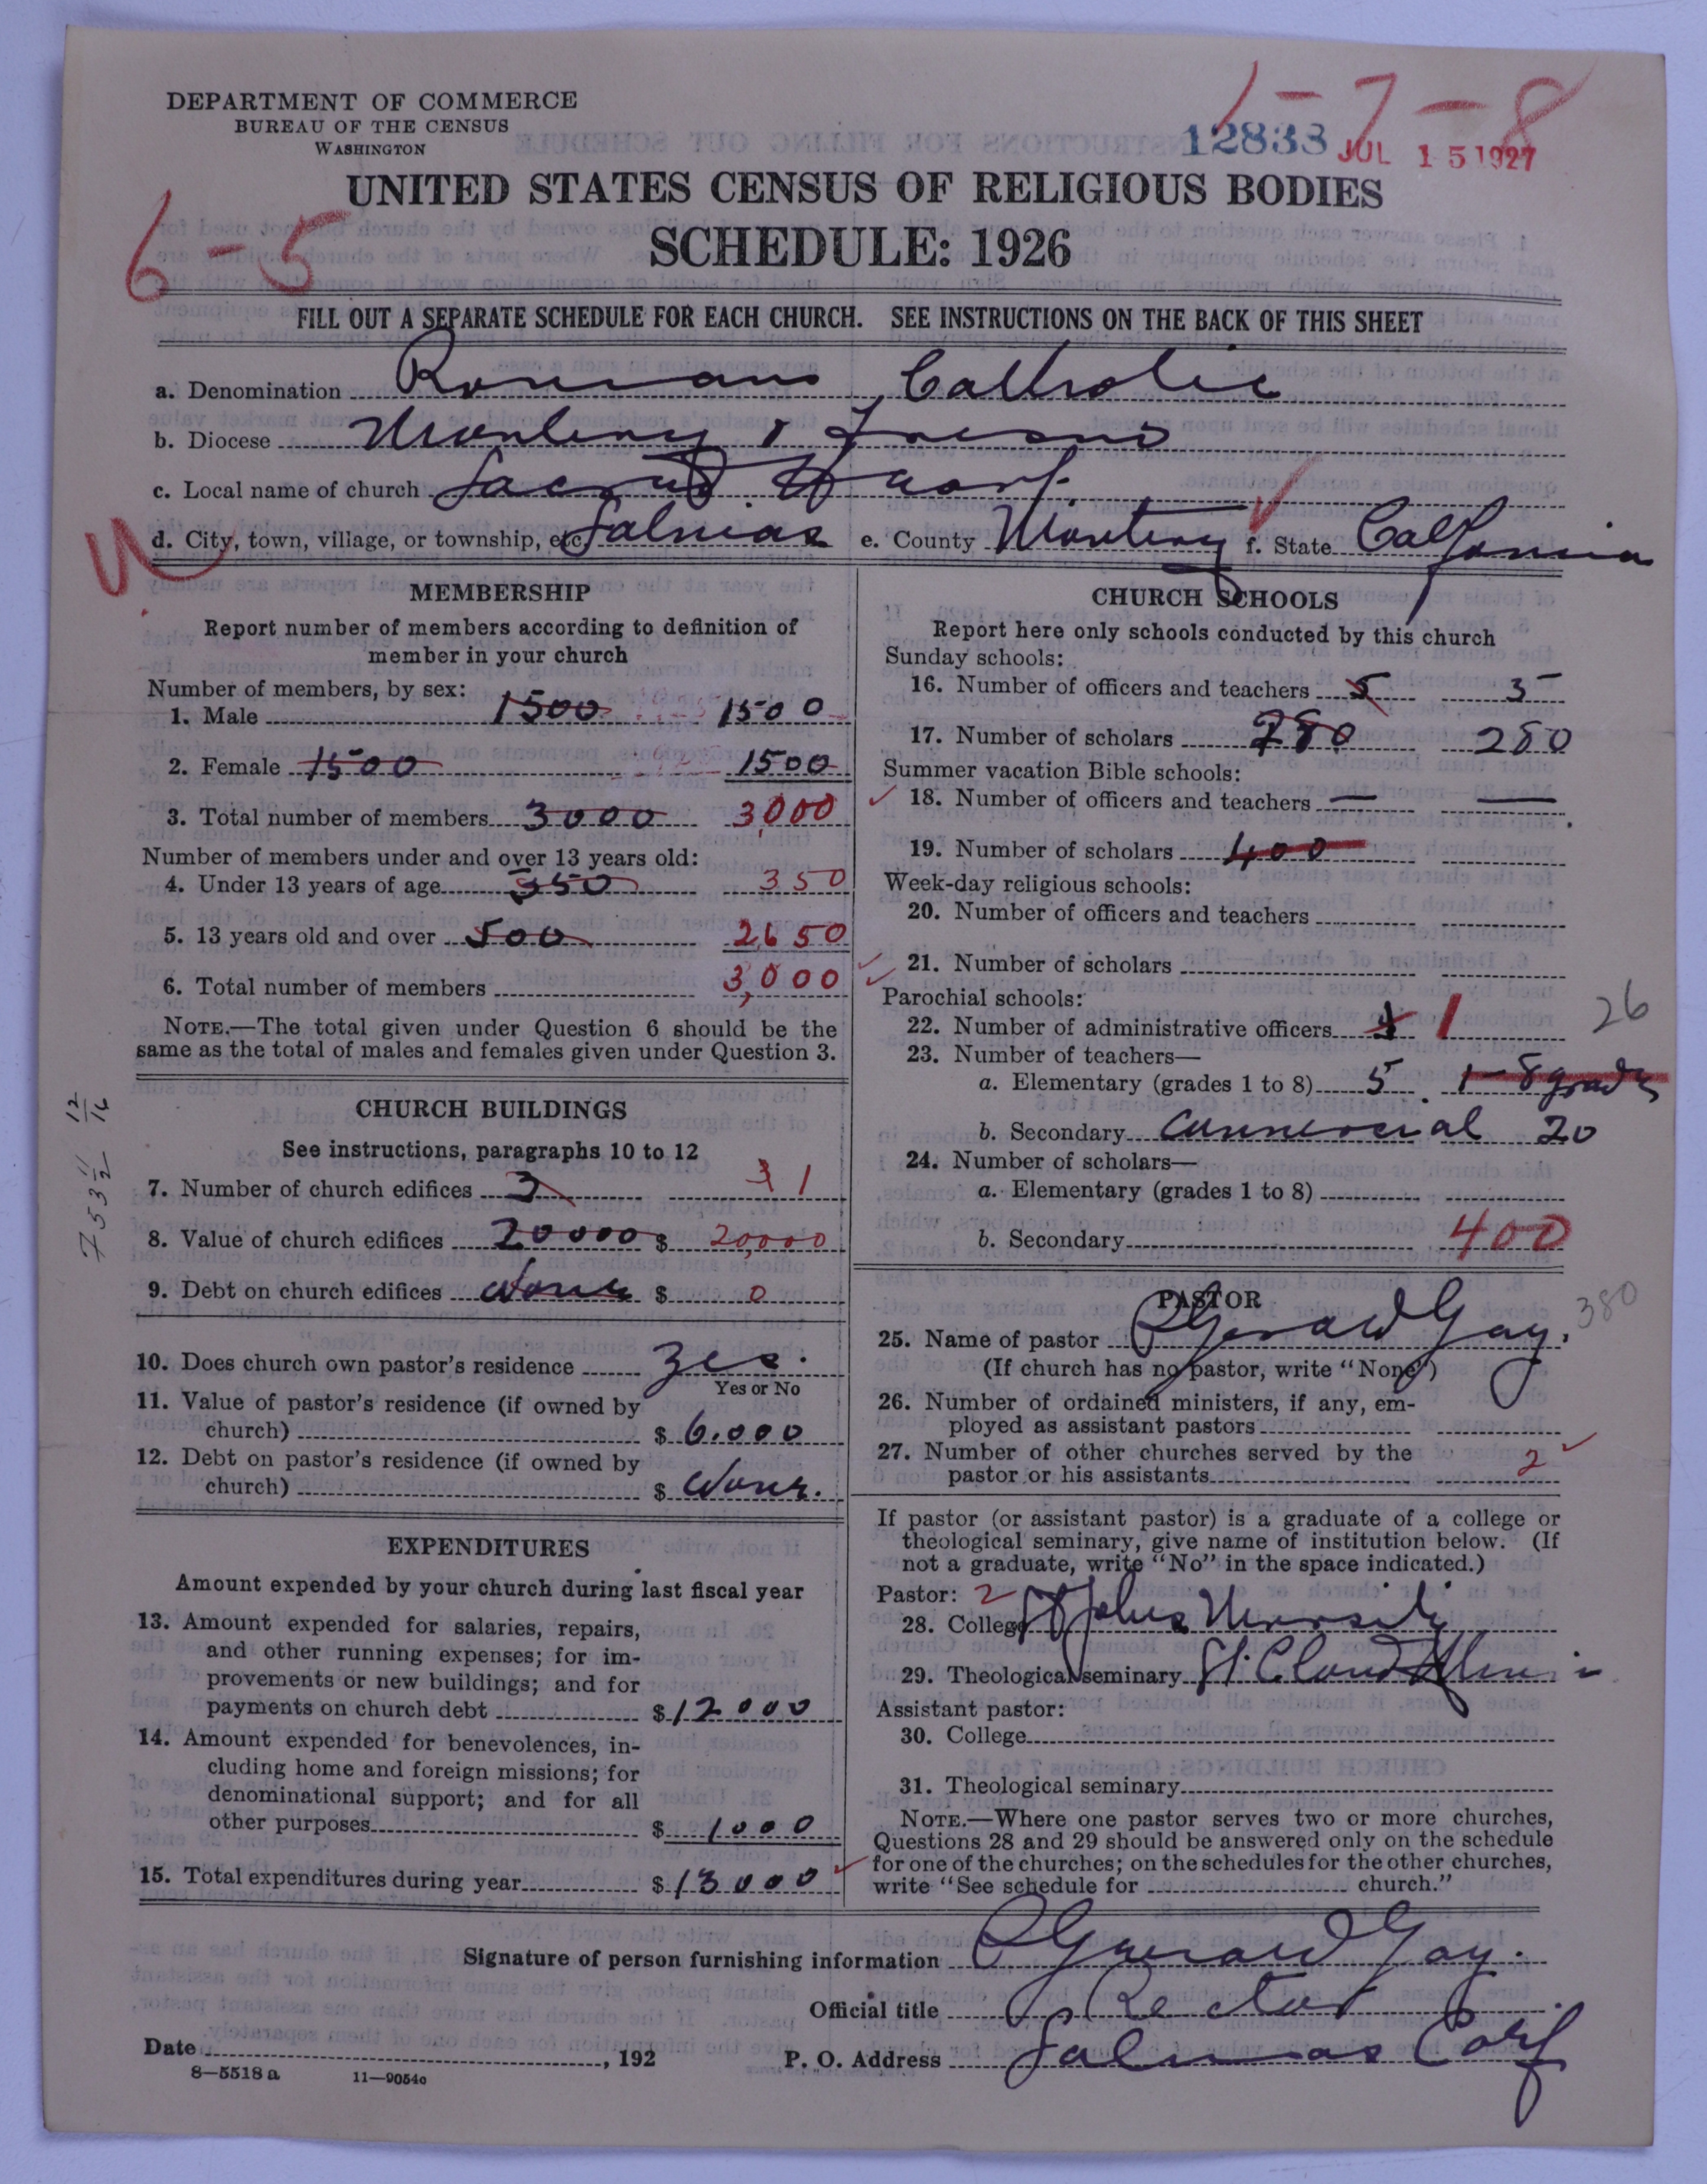 DEPARTMENT OF COMMERCE
BUREAU OF THE CENSUS
WASHINGTON
1-7-8
12833 JUL 15 1927
UNITED STATES CENSUS OF RELIGIOUS BODIES
6-5
SCHEDULE: 1926
FILL OUT A SEPARATE SCHEDULE FOR EACH CHURCH. SEE INSTRUCTIONS ON THE BACK OF THIS SHEET
a. Denomination Roman Catholic
b. Diocese Monterey & Fresno
c. Local name of church Sacred Heart.
d. City, town, village, or township, etc. Salinas e. County Monterey f. State California
MEMBERSHIP
Report number of members according to definition of
member in your church
Number of members, by sex:
1. Male 1500 1500
2. Female 1500 1500
3. Total number of members 3000 3,000
Number of members under and over 13 years old:
4. Under 13 years of age 350 350
5. 13 years old and over 500 2650
6. Total number of members 3,000
NOTE.—The total given under Question 6 should be the
same as the total of males and females given under Question 3.
CHURCH BUILDINGS
See instructions, paragraphs 10 to 12
7. Number of church edifices 3 3 1
8. Value of church edifices 20000 $ 20,000
9. Debt on church edifices None $ 0
10. Does church own pastor's residence Yes.
Yes or No
11. Value of pastor's residence (if owned by
church) $ 6.000
12. Debt on pastor's residence (if owned by
church) $ None.
EXPENDITURES
Amount expended by your church during last fiscal year
13. Amount expended for salaries, repairs,
and other running expenses; for im-
provements or new buildings; and for
payments on church debt $ 12000
14. Amount expended for benevolences, in-
cluding home and foreign missions; for
denominational support; and for all
other purposes $ 1000
15. Total expenditures during year $ 13000
CHURCH SCHOOLS
Report here only schools conducted by this church
Sunday schools:
16. Number of officers and teachers 5 5
17. Number of scholars 280 280
Summer vacation Bible schools:
18. Number of officers and teachers — —
19. Number of scholars 400
Week-day religious schools:
20. Number of officers and teachers
21. Number of scholars
Parochial schools:
22. Number of administrative officers 1 1 26
23. Number of teachers—
a. Elementary (grades 1 to 8) 5 1-8 grades
b. Secondary Commercial 20
24. Number of scholars—
a. Elementary (grades 1 to 8)
b. Secondary 400
PASTOR
380
25. Name of pastor P Gerard Gay.
(If church has no pastor, write "None")
26. Number of ordained ministers, if any, em-
ployed as assistant pastors
27. Number of other churches served by the
pastor or his assistants 2
If pastor (or assistant pastor) is a graduate of a college or
theological seminary, give name of institution below. (If
not a graduate, write "No" in the space indicated.)
Pastor: 2
28. College St Johns University
29. Theological seminary St. Cloud Minn
Assistant pastor:
30. College
31. Theological seminary
NOTE.—Where one pastor serves two or more churches,
Questions 28 and 29 should be answered only on the schedule
for one of the churches; on the schedules for the other churches,
write "See schedule for church."
Signature of person furnishing information P Gerard Gay.
Official title Rector
Date , 192 P. O. Address Salinas Calif
8—5518 a 11—9054c